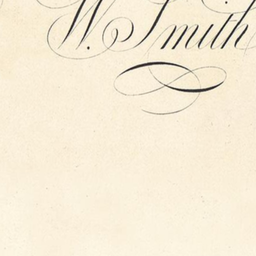 W. Smith